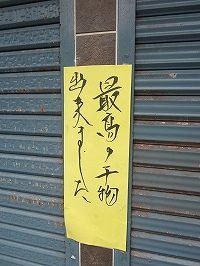 最高ノ干物
出来ました